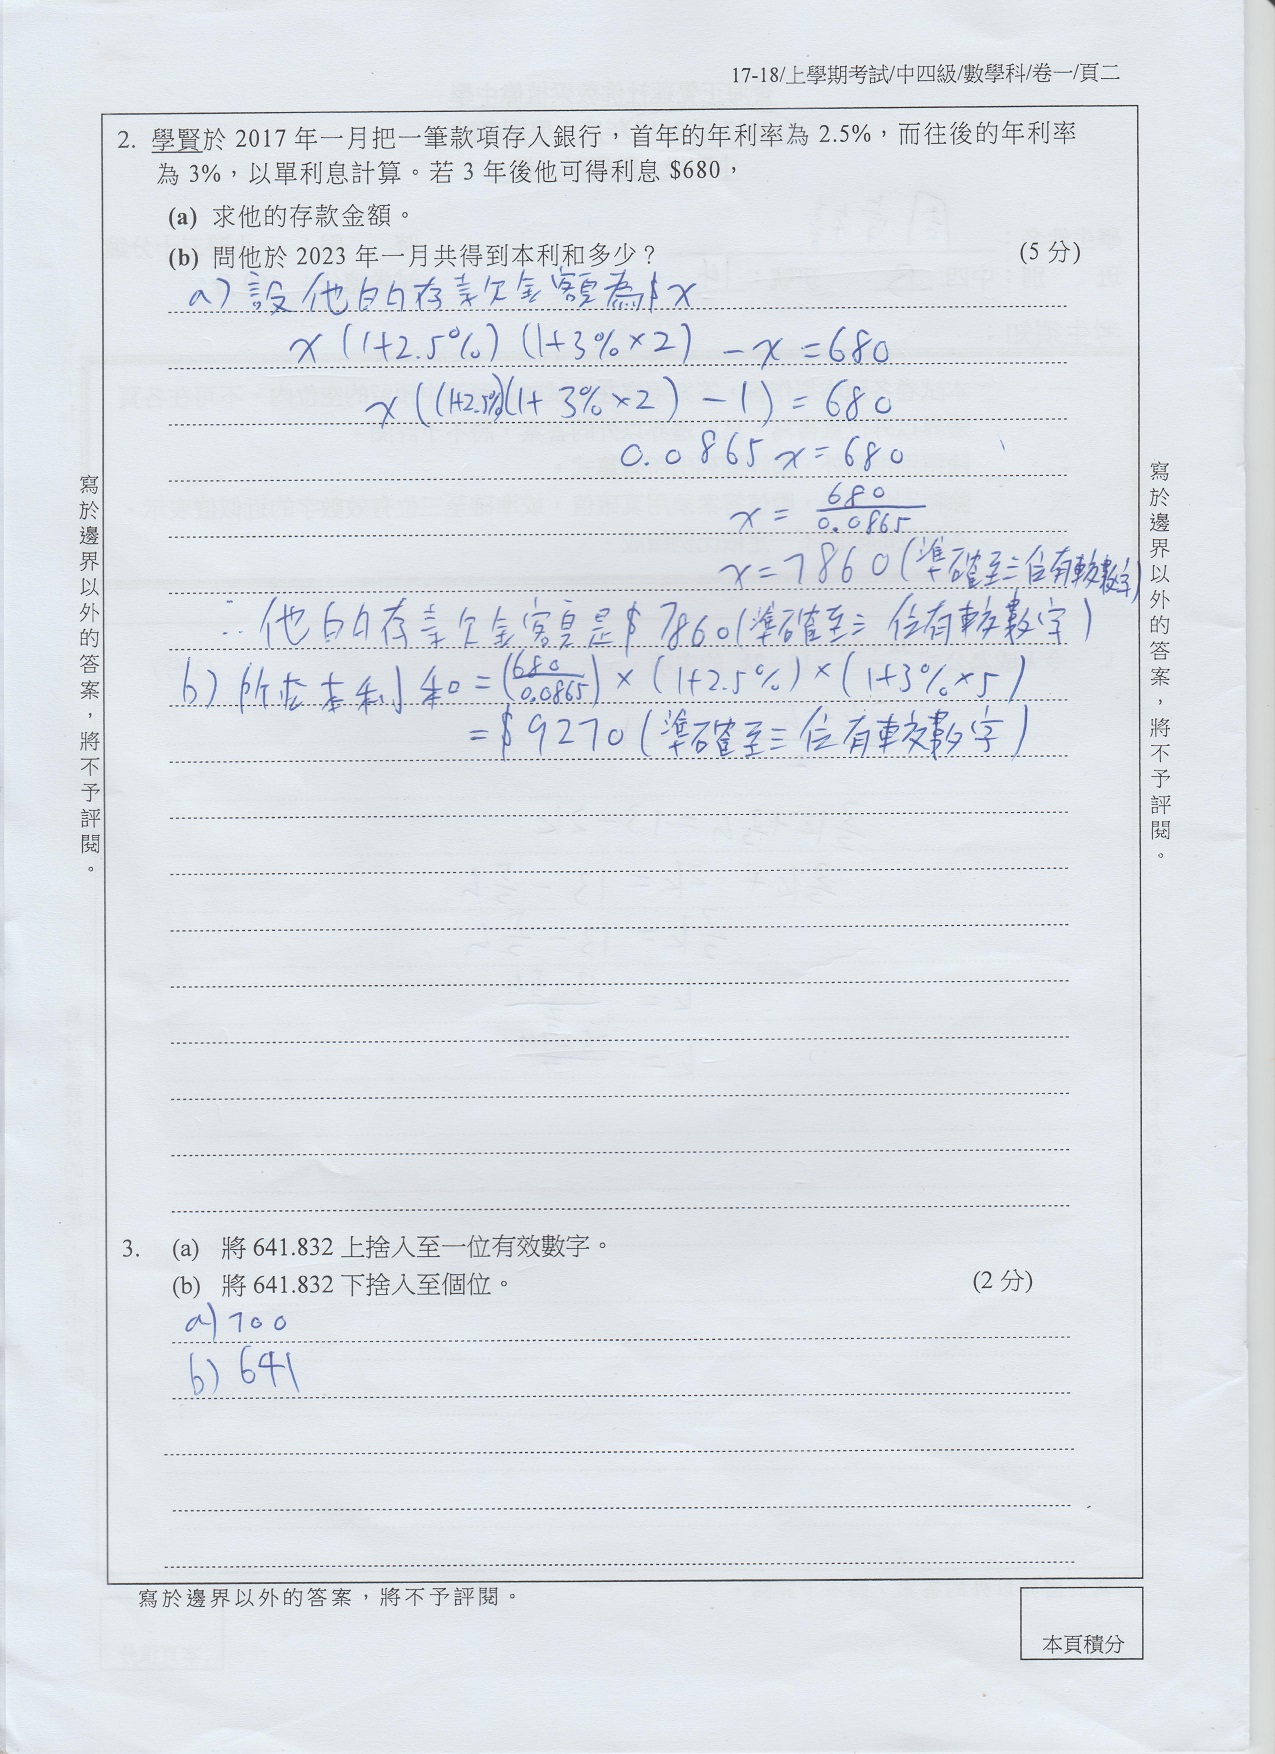 17-18/上學期考試/中四級/數學科/卷一/頁二
2. 學賢於 2017 年一月把一筆款項存入銀行，首年的年利率為 2.5%，而往後的年利率
為 3%，以單利息計算。若 3 年後他可得利息 $680，
(a) 求他的存款金額。
(b) 問他於 2023 年一月共得到本利和多少？ (5 分)
a) 設他的存款金額為$x
x(1+2.5%)(1+3%×2) - x = 680
x((1+2.5%)(1+3%×2) - 1) = 680
0.0865x = 680
x = 680/0.0865
x = 7860(準確至三位有效數字)
∴他的存款金額是$7860(準確至三位有效數字)
b) 所查本利和 = (680/0.0865)×(1+2.5%)×(1+3%×5)
= $9270(準確至三位有效數字)
3. (a) 將 641.832 上捨入至一位有效數字。
(b) 將 641.832 下捨入至個位。 (2 分)
a) 700
b) 641
寫於邊界以外的答案，將不予評閱。
寫於邊界以外的答案，將不予評閱。
寫於邊界以外的答案，將不予評閱。
本頁積分